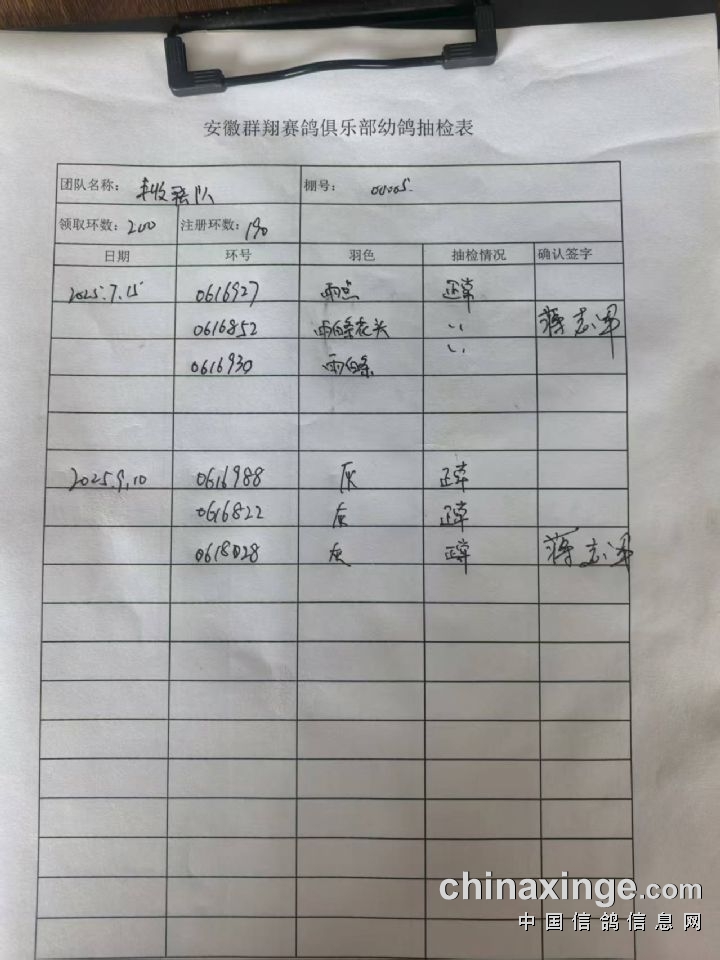 安徽群翔赛鸽俱乐部幼鸽抽检表
团队名称： 丰收 队 棚号： 00005
领取环数： 200 注册环数： 190
日期 环号 羽色 抽检情况 确认签字
2025.7.15 0616927 雨点 正常
0616852 雨白条花头 〃 蒋志军
0616930 雨白条 〃
2025.9.10 0616988 灰 正常
0616822 灰 正常
0618028 灰 正常 蒋志军
chinaxinge.com
中国信鸽信息网